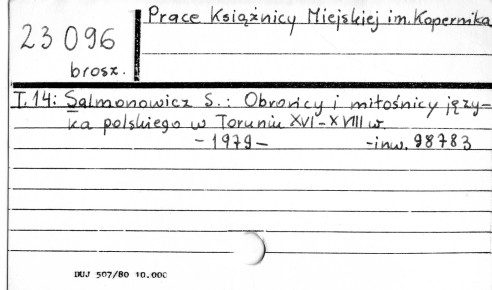 Prace Książnicy Miejskiej im. Kopernika
23 096
brosz.
T. 14: Salmonowicz S.: Obrońcy i miłośnicy języ=
ka polskiego w Toruniu XVI-XVIII w.
- 1979 - -inw. 98783
DUJ 507/80 10.000